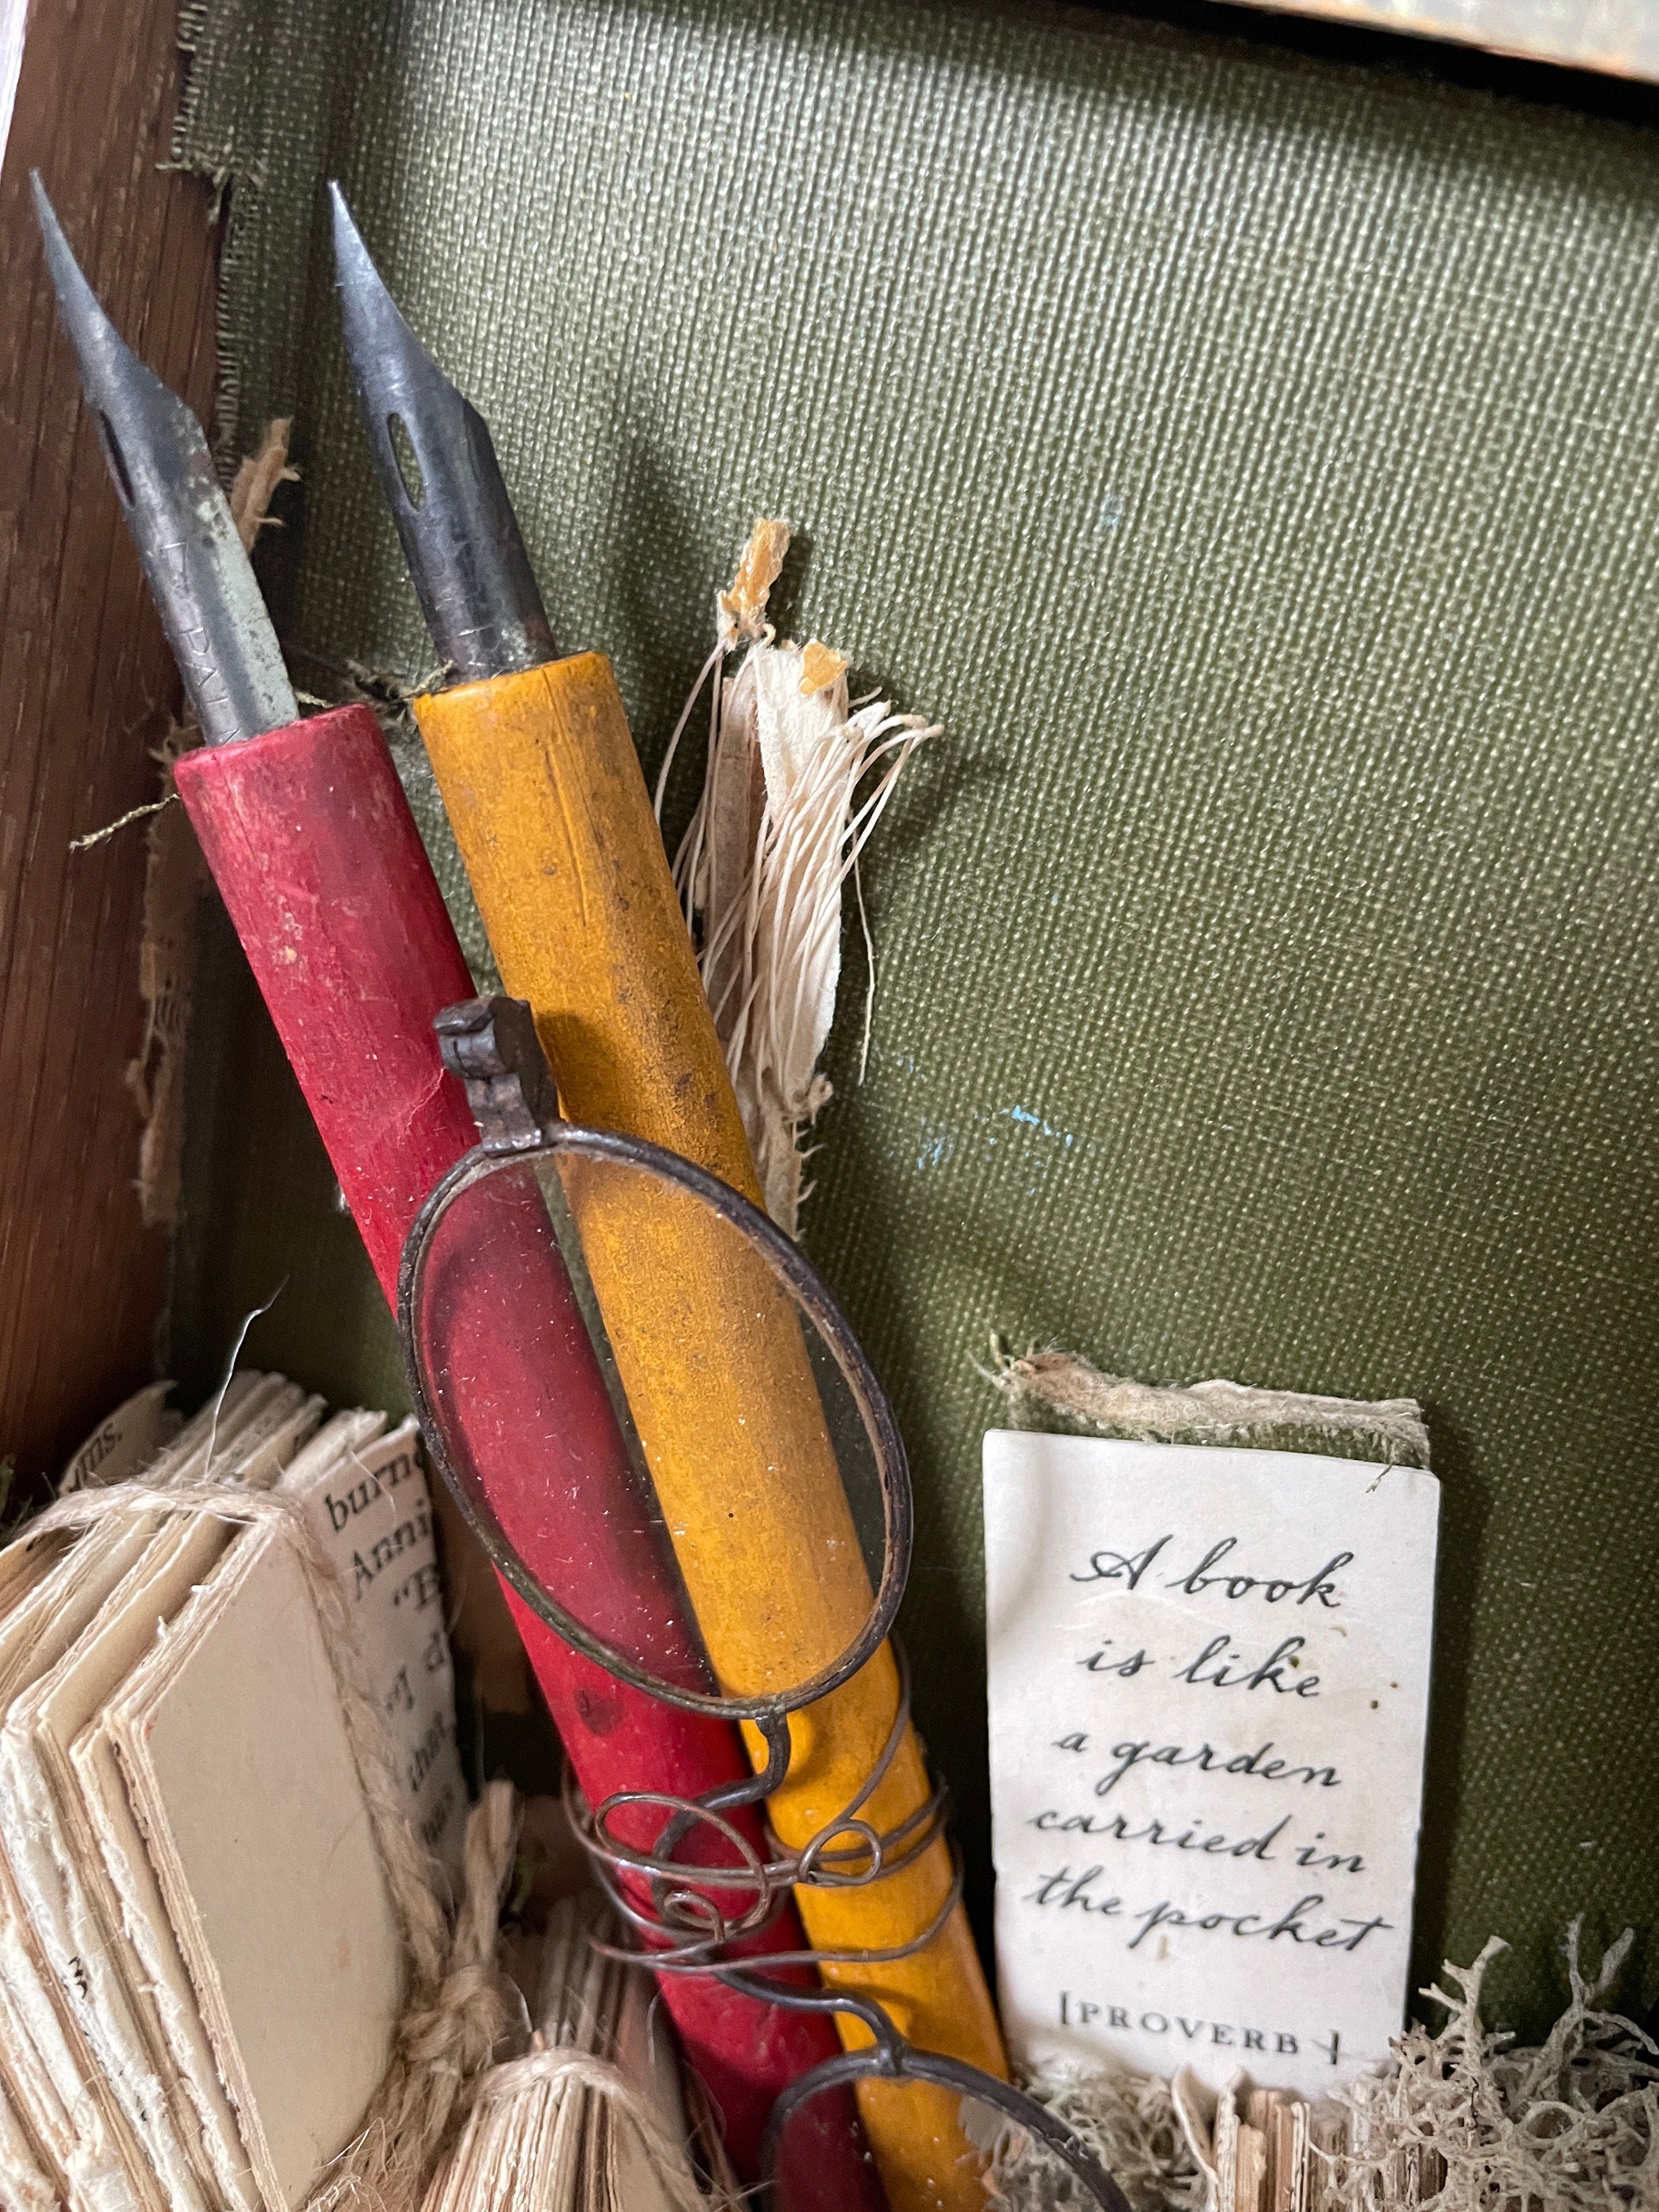 A book
is like
a garden
carried in
the pocket
[PROVERB]
ms.
burne
Anni
"E
d
that
3